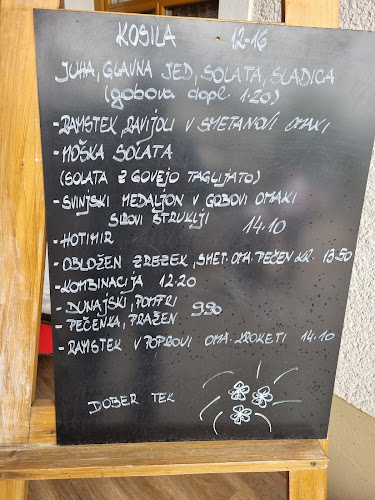 KOSILA 12-16
JUHA, GLAVNA JED, SOLATA, SLADICA
(gobova dopl. 1.20)
- RAMSTEK, RAVIJOLI V SMETANOVI OMAKI
- MOŠKA SOLATA
(SOLATA Z GOVEJO TAGLIJATO)
- SVINJSKI MEDALJON V GOBOVI OMAKI
SIROVI ŠTRUKLJI 14.10
- HOTIMIR
- OBLOŽEN ZREZEK, SMET. OMA. PEČEN KR. 13.50
- KOMBINACIJA 12.20
- DUNAJSKI, POMFRI
- PEČENKA, PRAŽEN 9.90
- RAMSTEK V POPROVI OMA. KROKETI 14.10
DOBER TEK